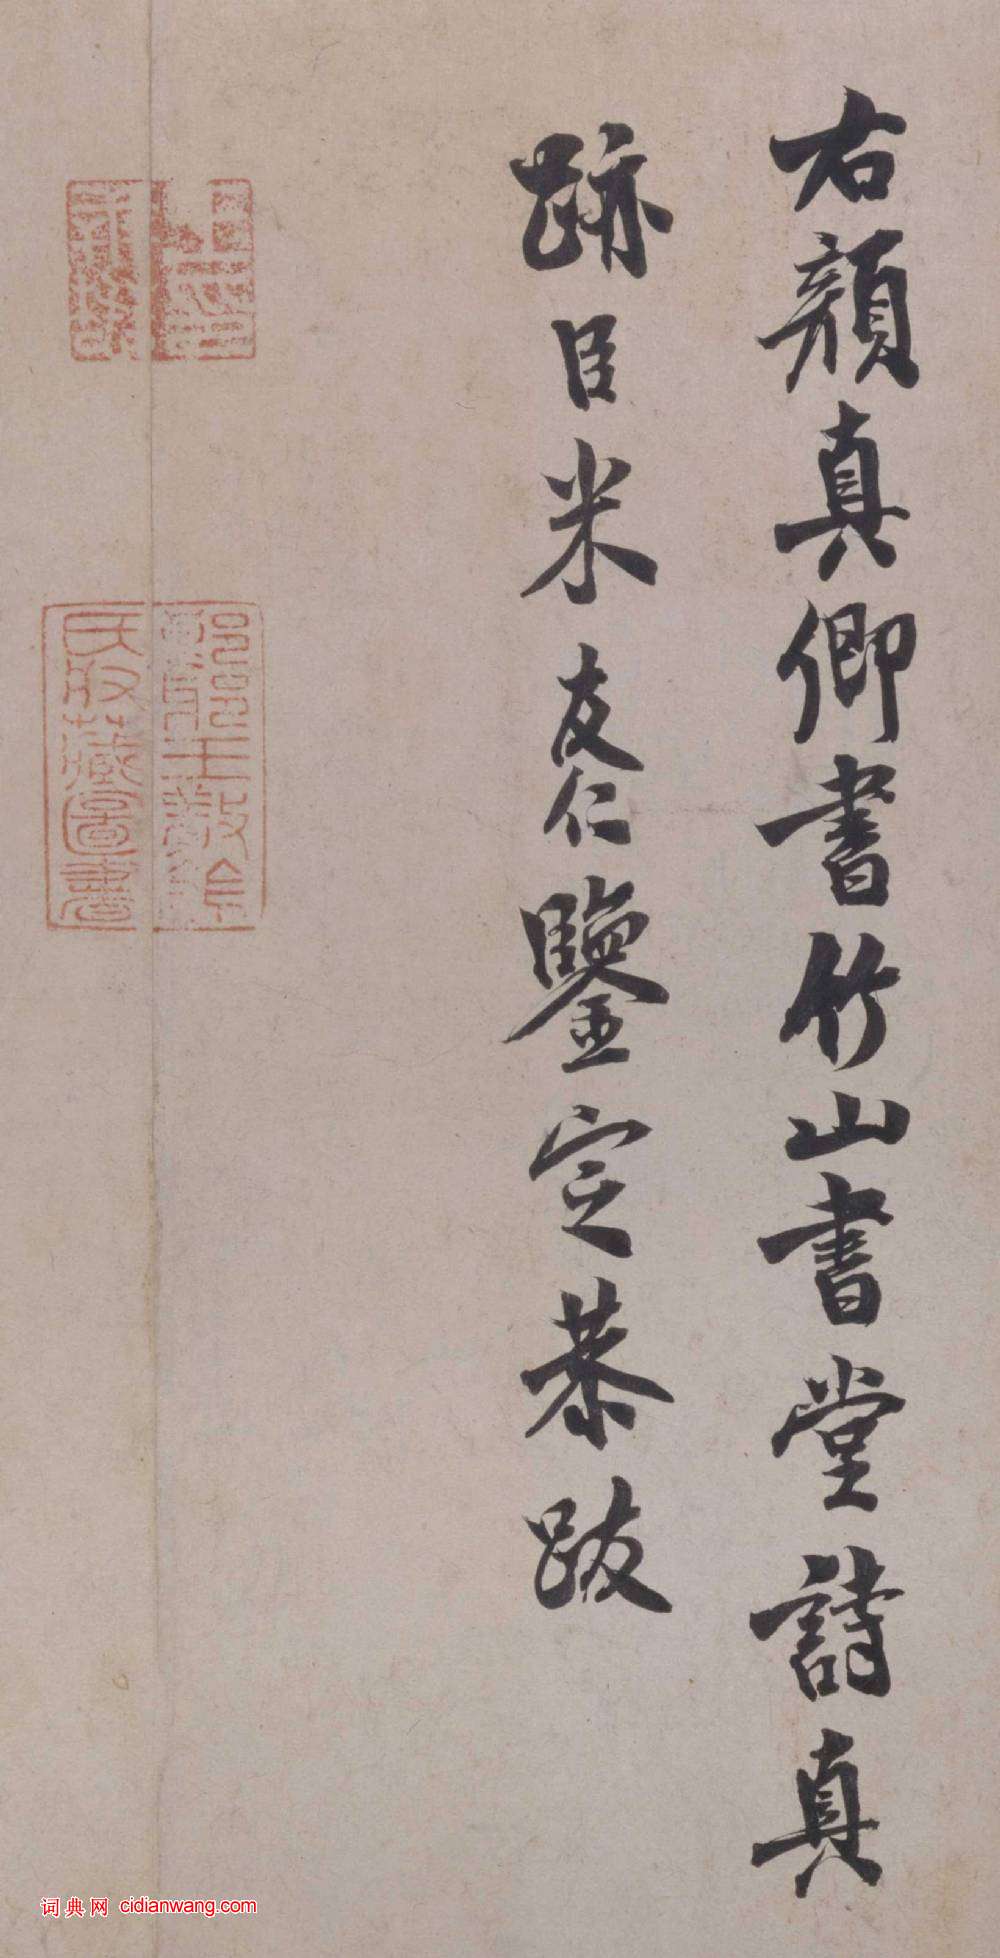 右顏真卿書竹山書堂詩真
跡臣米友仁鑒定恭跋
氏收藏圖書
词典网 cidianwang.com